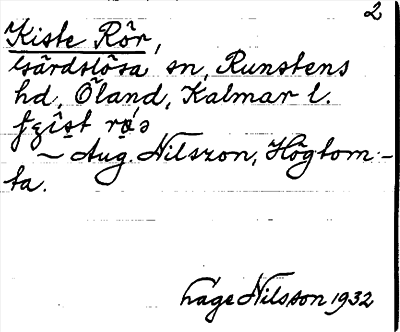 2
Kiste Rör,
Gärdslösa sn, Runstens
hd, Öland, Kalmar l.
~ Aug. Nilsson, Högtom-
ta.
Åge Nilsson 1932